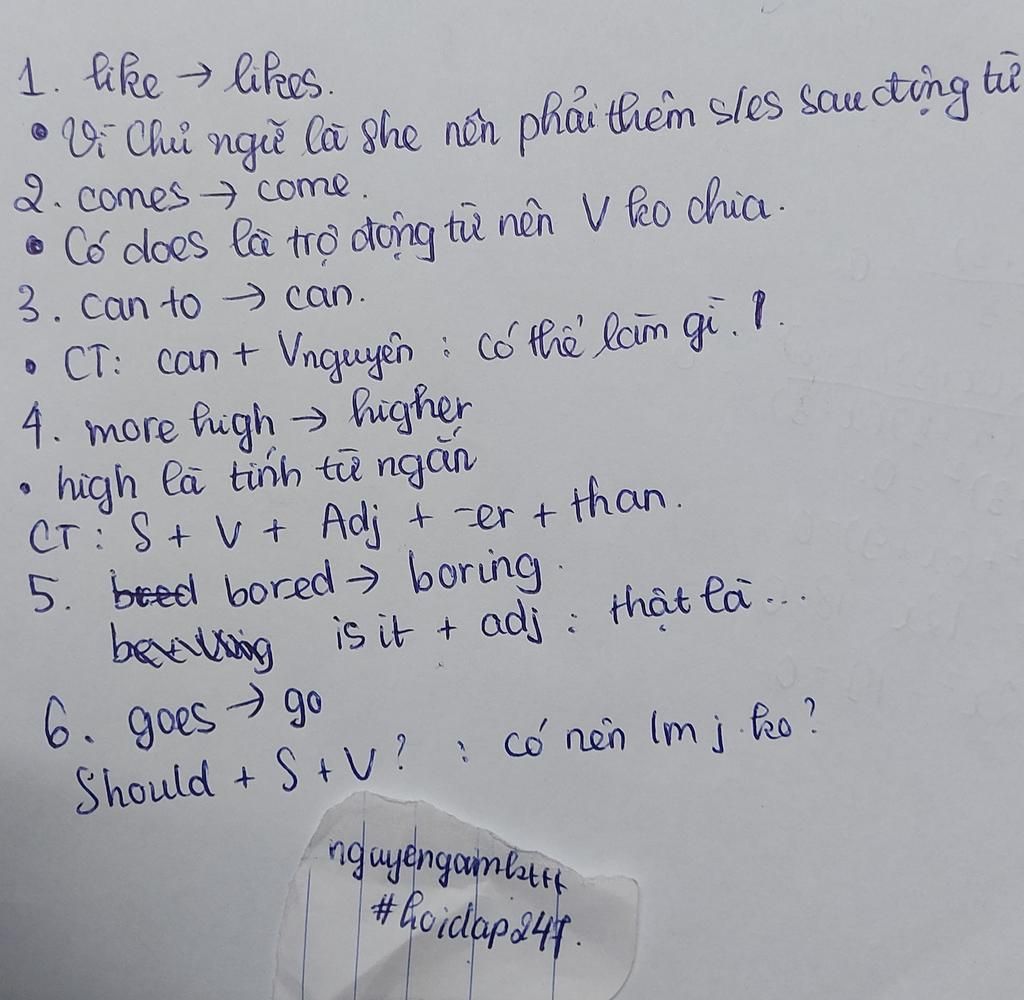 1. like → likes.
• Vì Chủ ngữ là she nên phải thêm s/es sau động từ
2. comes → come.
• Có does là trợ động từ nên V ko chia.
3. can to → can.
• CT: can + Vnguyên : có thể làm gì. !.
4. more high → higher
• high là tính từ ngắn
CT: S + V + Adj + -er + than.
5. bored → boring.
is it + adj : thật là...
6. goes → go
Should + S + V? : có nên lm j ko?
#hoidap247.